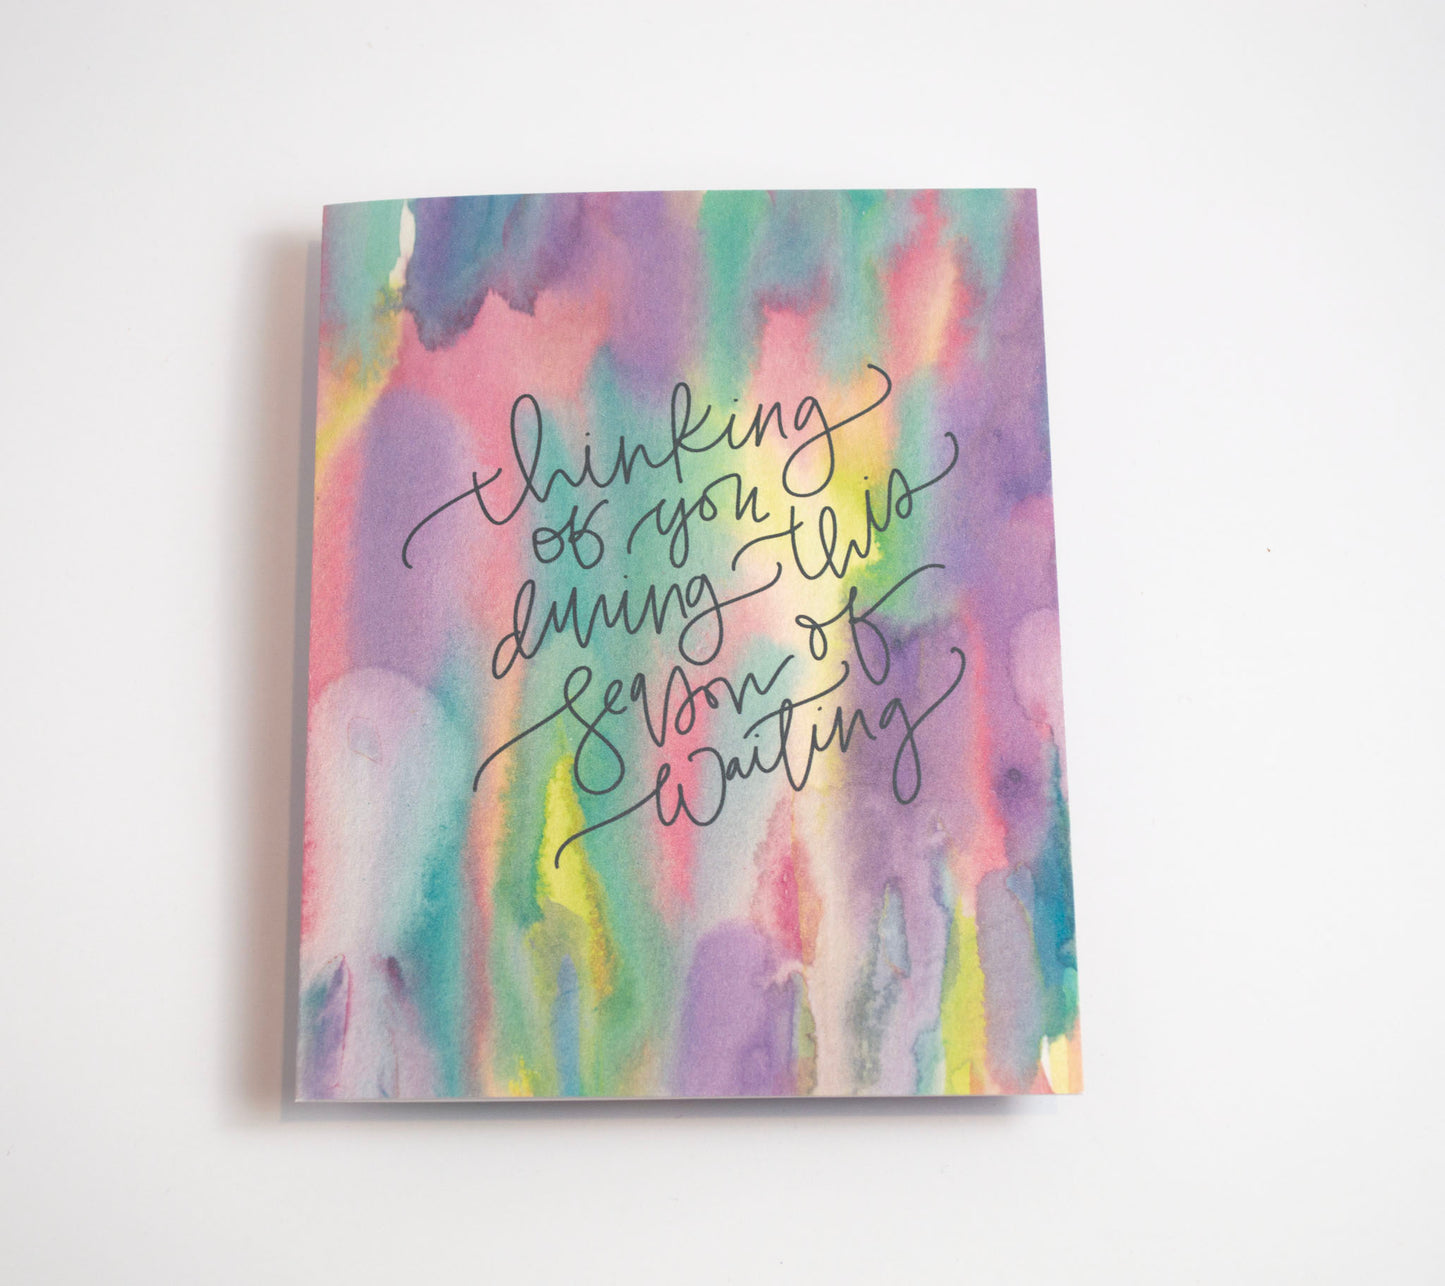 thinking
of you
during this
season of
waiting